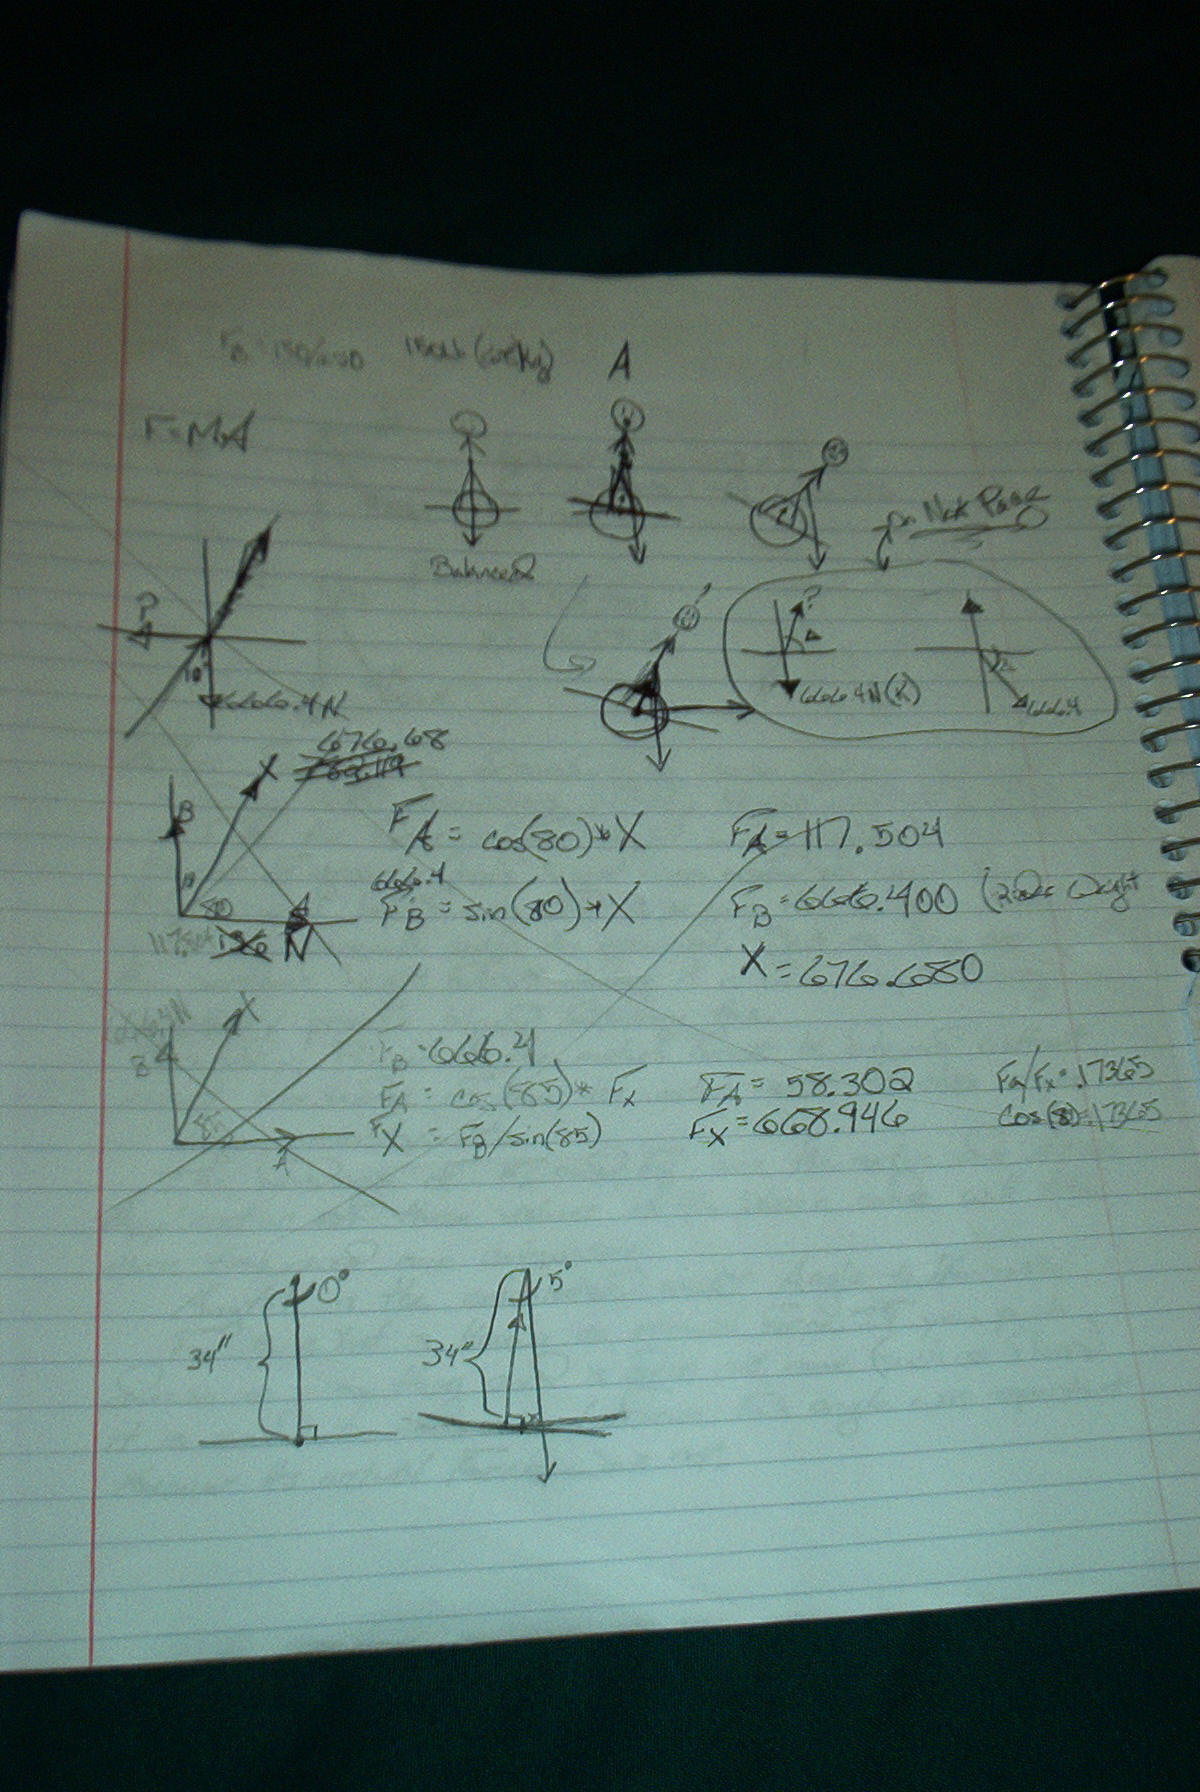 150lb
A
F=MA
On Next Page
Balanced
?
10°
666.4N
?
666.4N
666.4
676.68
X
B
F_A = cos(80)*X
F_A=117.504
80
666.4
F_B = sin(80)*X
F_B=666.400 (Rider Weight
A
N
X=676.680
X
B
F_B=666.4
F_A = cos(85)* F_x
F_A= 58.302
F_A/F_x=.17365
85
F_X = F_B/sin(85)
F_X=668.946
cos(80)=.17365
A
0°
5°
34"
34"